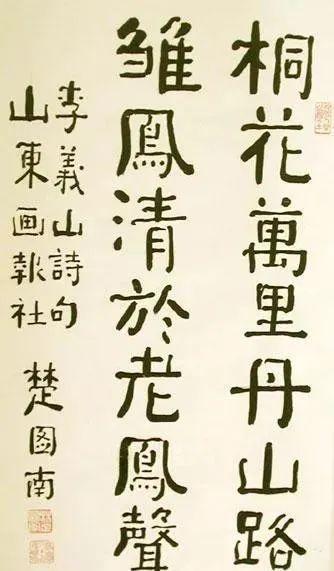 桐花萬里丹山路
雛鳳清於老鳳聲
李義山詩句
山東画報社 楚图南